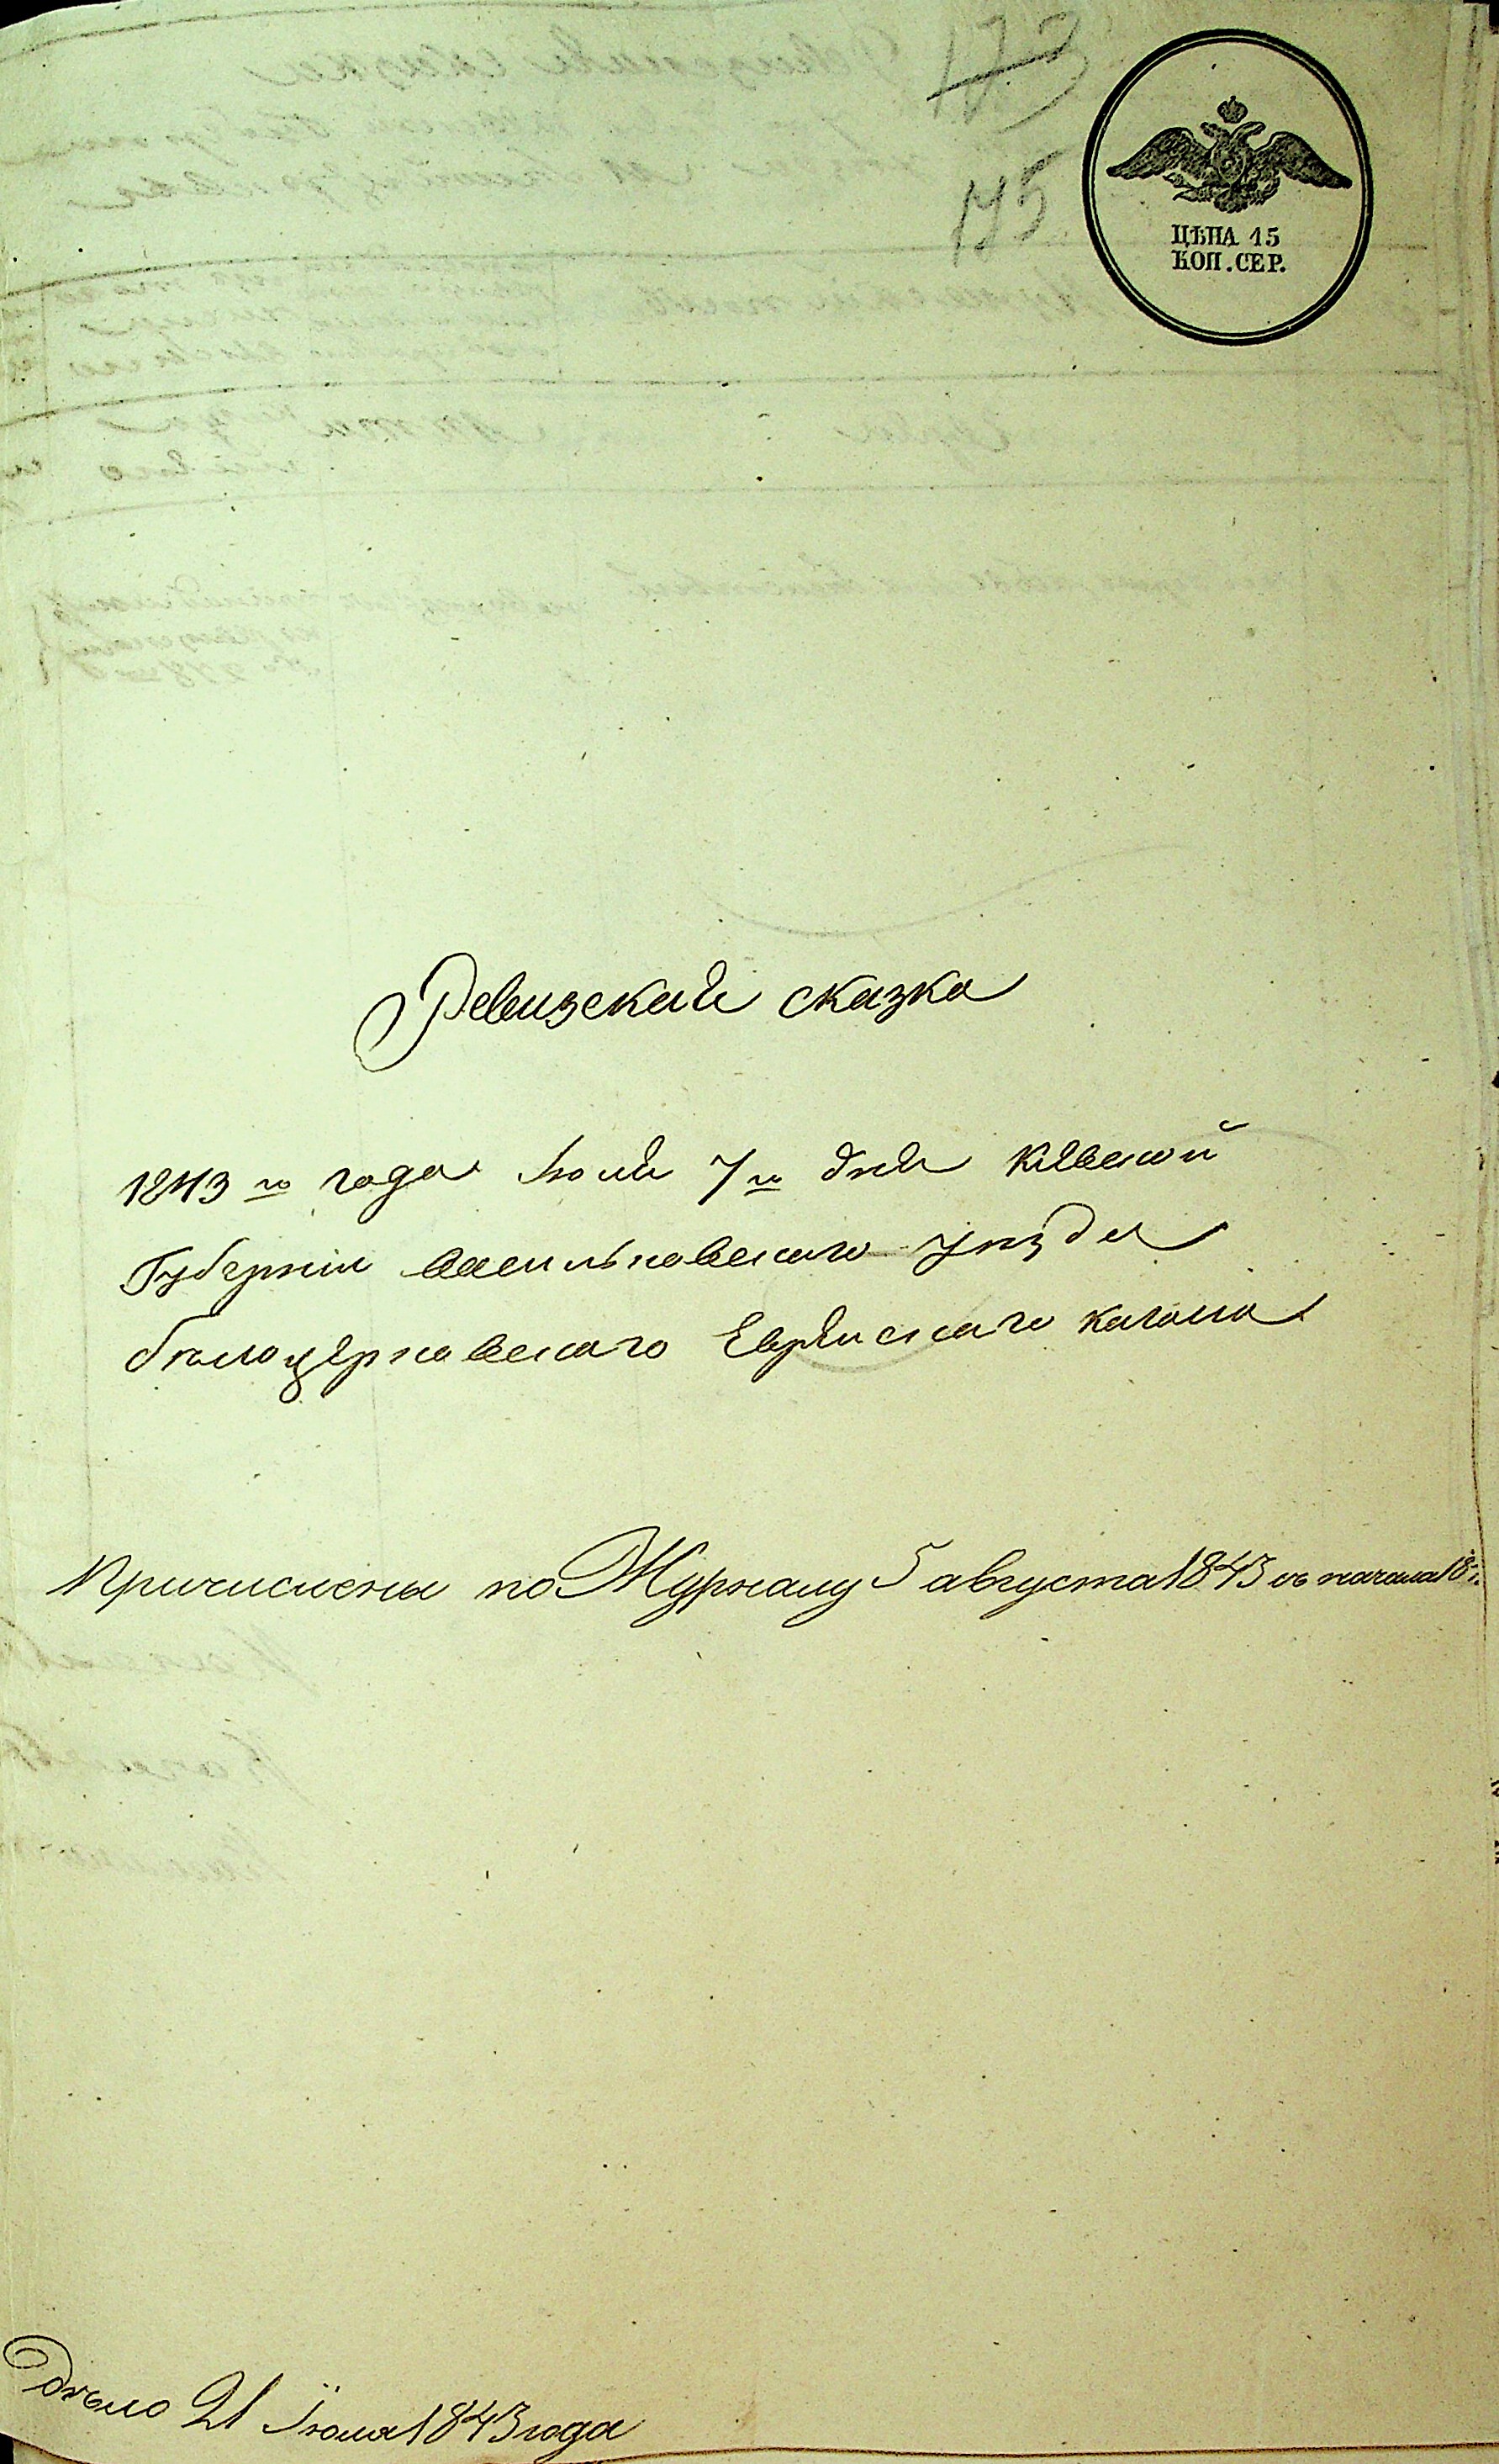 173
175
ЦѢНА 15
КОП. СЕР.
Ревизская сказка
1843 го года Іюля 7 го дня Кіевской
Губерніи васильковскаго уѣзда
бѣлоцерковскаго Еврейскаго кагала
Причислены по Журналу 5 августа 1843 съ начала 18
дѣло 21 Іюля 1843 года